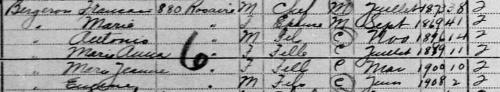 Bergeron 880 Rosaire M Chef M Juillet 1873 38 2
" Marie " F Femme M Sept 1869 41 2
" Antonio " M Fils C Nov 1896 14 2
" Marie Anna " F Fille C Juillet 1889 11 2
" Marie Jeanne " F Fille C Mai 1900 10 2
" Eugène " M Fils C Juin 1908 2 2
6